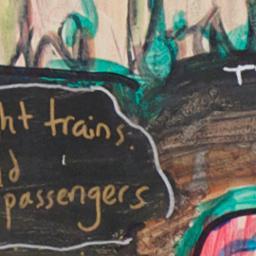 ht trains.
d
passengers
T